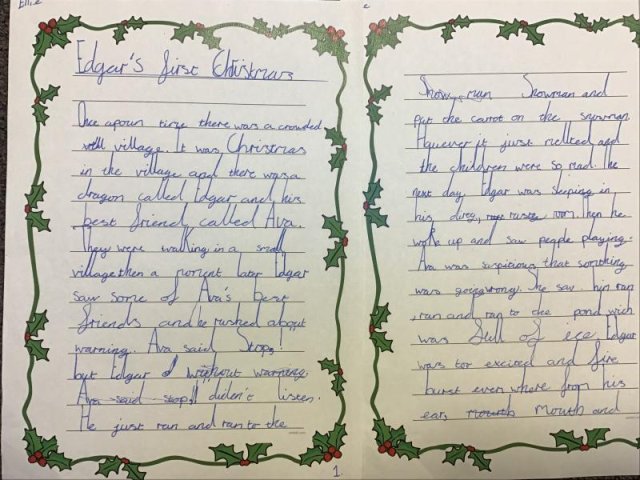 Ellie
Edgar's first Christmas
Once apoun time there was a crowded
village. It was Christmas
in the village and there was a
dragon called Edgar and his
best friend called Ava.
They were walking in a small
village then a moment later Edgar
saw some of Ava's best
friends and he rushed about
warning. Ava said Stop!
but Edgar without warning.
Ava said stop, diden't listen.
He just ran and ran to the
1
Snow man Snowman and
put the carrot on the snowman
However it just melted and
the children were so mad. The
next day Edgar was sleeping in
his room. Then he
woke up and saw people playing.
Ava was suspicious that somthing
was going wrong. She saw him ran
, ran and ran to the pond wich
was full of ice Edgar
was tor excited and fire
burst everwhere from his
ears mouth Mouth and